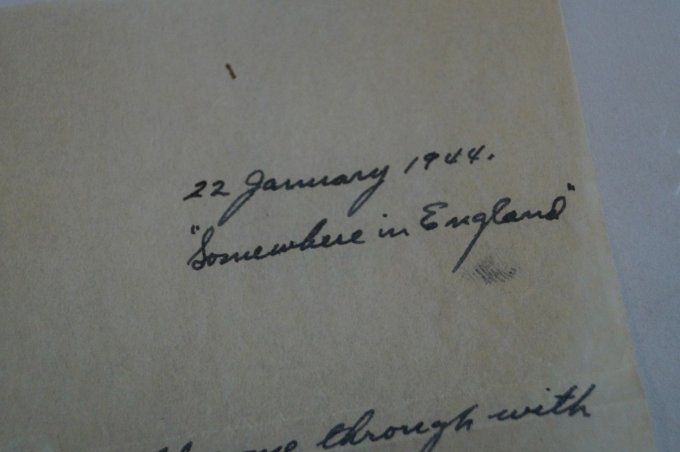 22 January 1944.
"Somewhere in England"
through with